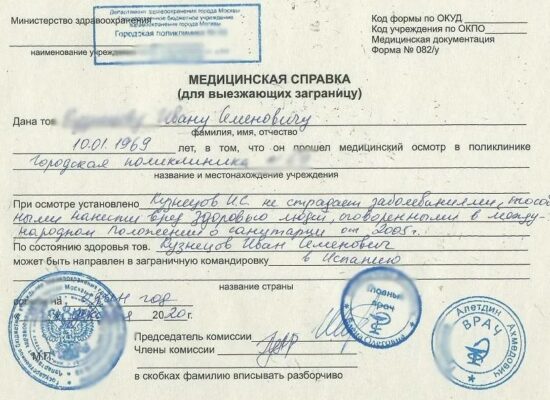 Министерство здравоохранения
Департамент здравоохранения города Москвы
бюджетное учреждение
здравоохранения города Москвы
Городская поликлиника №
наименование учреждения
Код формы по ОКУД
Код учреждения по ОКПО
Медицинская документация
Форма № 082/у
МЕДИЦИНСКАЯ СПРАВКА
(для выезжающих заграницу)
Дана тов. Ивану Семеновичу
фамилия, имя, отчество
10.01.1969 лет, в том, что он прошел медицинский осмотр в поликлинике
Городская поликлиника №
название и местонахождение учреждения
При осмотре установлено Кузнецов И.С. не страдает заболеваниями, способ
ными нанести вред здоровью людей, оговоренными в между-
народном положении о санитарии от 2005г.
По состоянию здоровья тов. Кузнецов Иван Семенович
может быть направлен в заграничную командировку в Испанию
название страны
один год
2020г.
Председатель комиссии
Члены комиссии
М.П.
в скобках фамилию вписывать разборчиво
врач
Алетдин Ахмедович
ВРАЧ